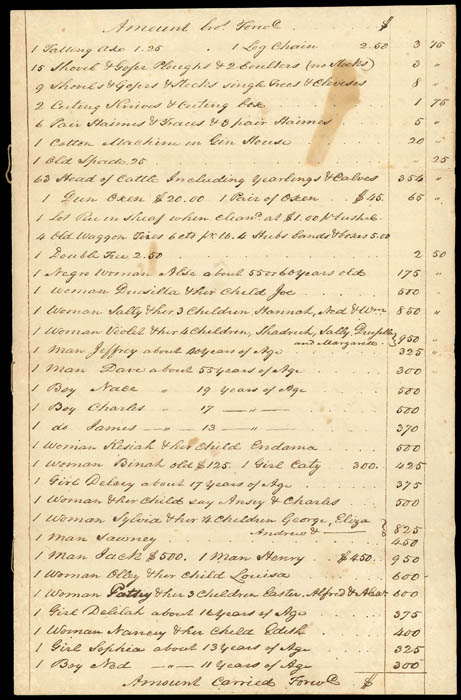 Amount bro.t Forw.d $
1 Falling Axe 1.25 . 1 Log Chain 2.50 3 75
15 Shovel & Gofer Ploughs & 2 Coulters (no Stocks) 3 "
9 Shovels & Gofers & Stocks single Trees & Clevises 8 "
2 Cutting Knives & Cutting box 1 75
6 Pair Haimes & Traces & 3 pair Haimes 5 "
1 Cotton Machine in Gin House 20 "
1 Old Spade 25 " 25
63 Head of Cattle Including Yearlings & Calves 354 "
1 Dun Oxen $20.00 1 Pair of Oxen $45. 65 "
1 Lot Rie in Sheaf when clean.d at $1.00 pr bushel
4 Old Waggon Tires 6 cts pr lb. 4 Stubs bands & boxes 5.00
1 Double Tree 2.50 2 50
1 Negro Woman Alse about 55 or 60 years old 175 "
1 Woman Drusilla & her Child Joe 500 -
1 Woman Sally & her 3 Children Hannah, Ned & Wm 850 "
1 Woman Violet & her 4 Children, Shadrick, Sally, and Margaret 950 "
1 Man Jeffrey about 40 years of Age 325 "
1 Man Dave about 55 years of Age 300
1 Boy Nace " 19 years of Age 500
1 Boy Charles " 17 — " — 500
1 do James — " — 13 — " — 370
1 Woman Kesiah & her Child Endama 500
1 Woman Binah old $125. 1 Girl Caty 300. 425
1 Girl Delsey about 17 years of Age 375
1 Woman & her Child say Ansey & Charles 500
1 Woman Sylvia & her 4 Children George, Eliza Andrew & —— 825
1 Man Sawney 450
1 Man Jack $500. 1 Man Henry $450. 950
1 Woman Olley & her Child Louisa 600 -
1 Woman Patty & her 3 Children Easter, Alfred & 600
1 Girl Delilah about 16 years of Age 375
1 Woman Nancy & her Child Edith 400
1 Girl Sophia about 13 years of Age 325
1 Boy Nad — " — 11 years of Age 300
Amount Carried Forw.d $